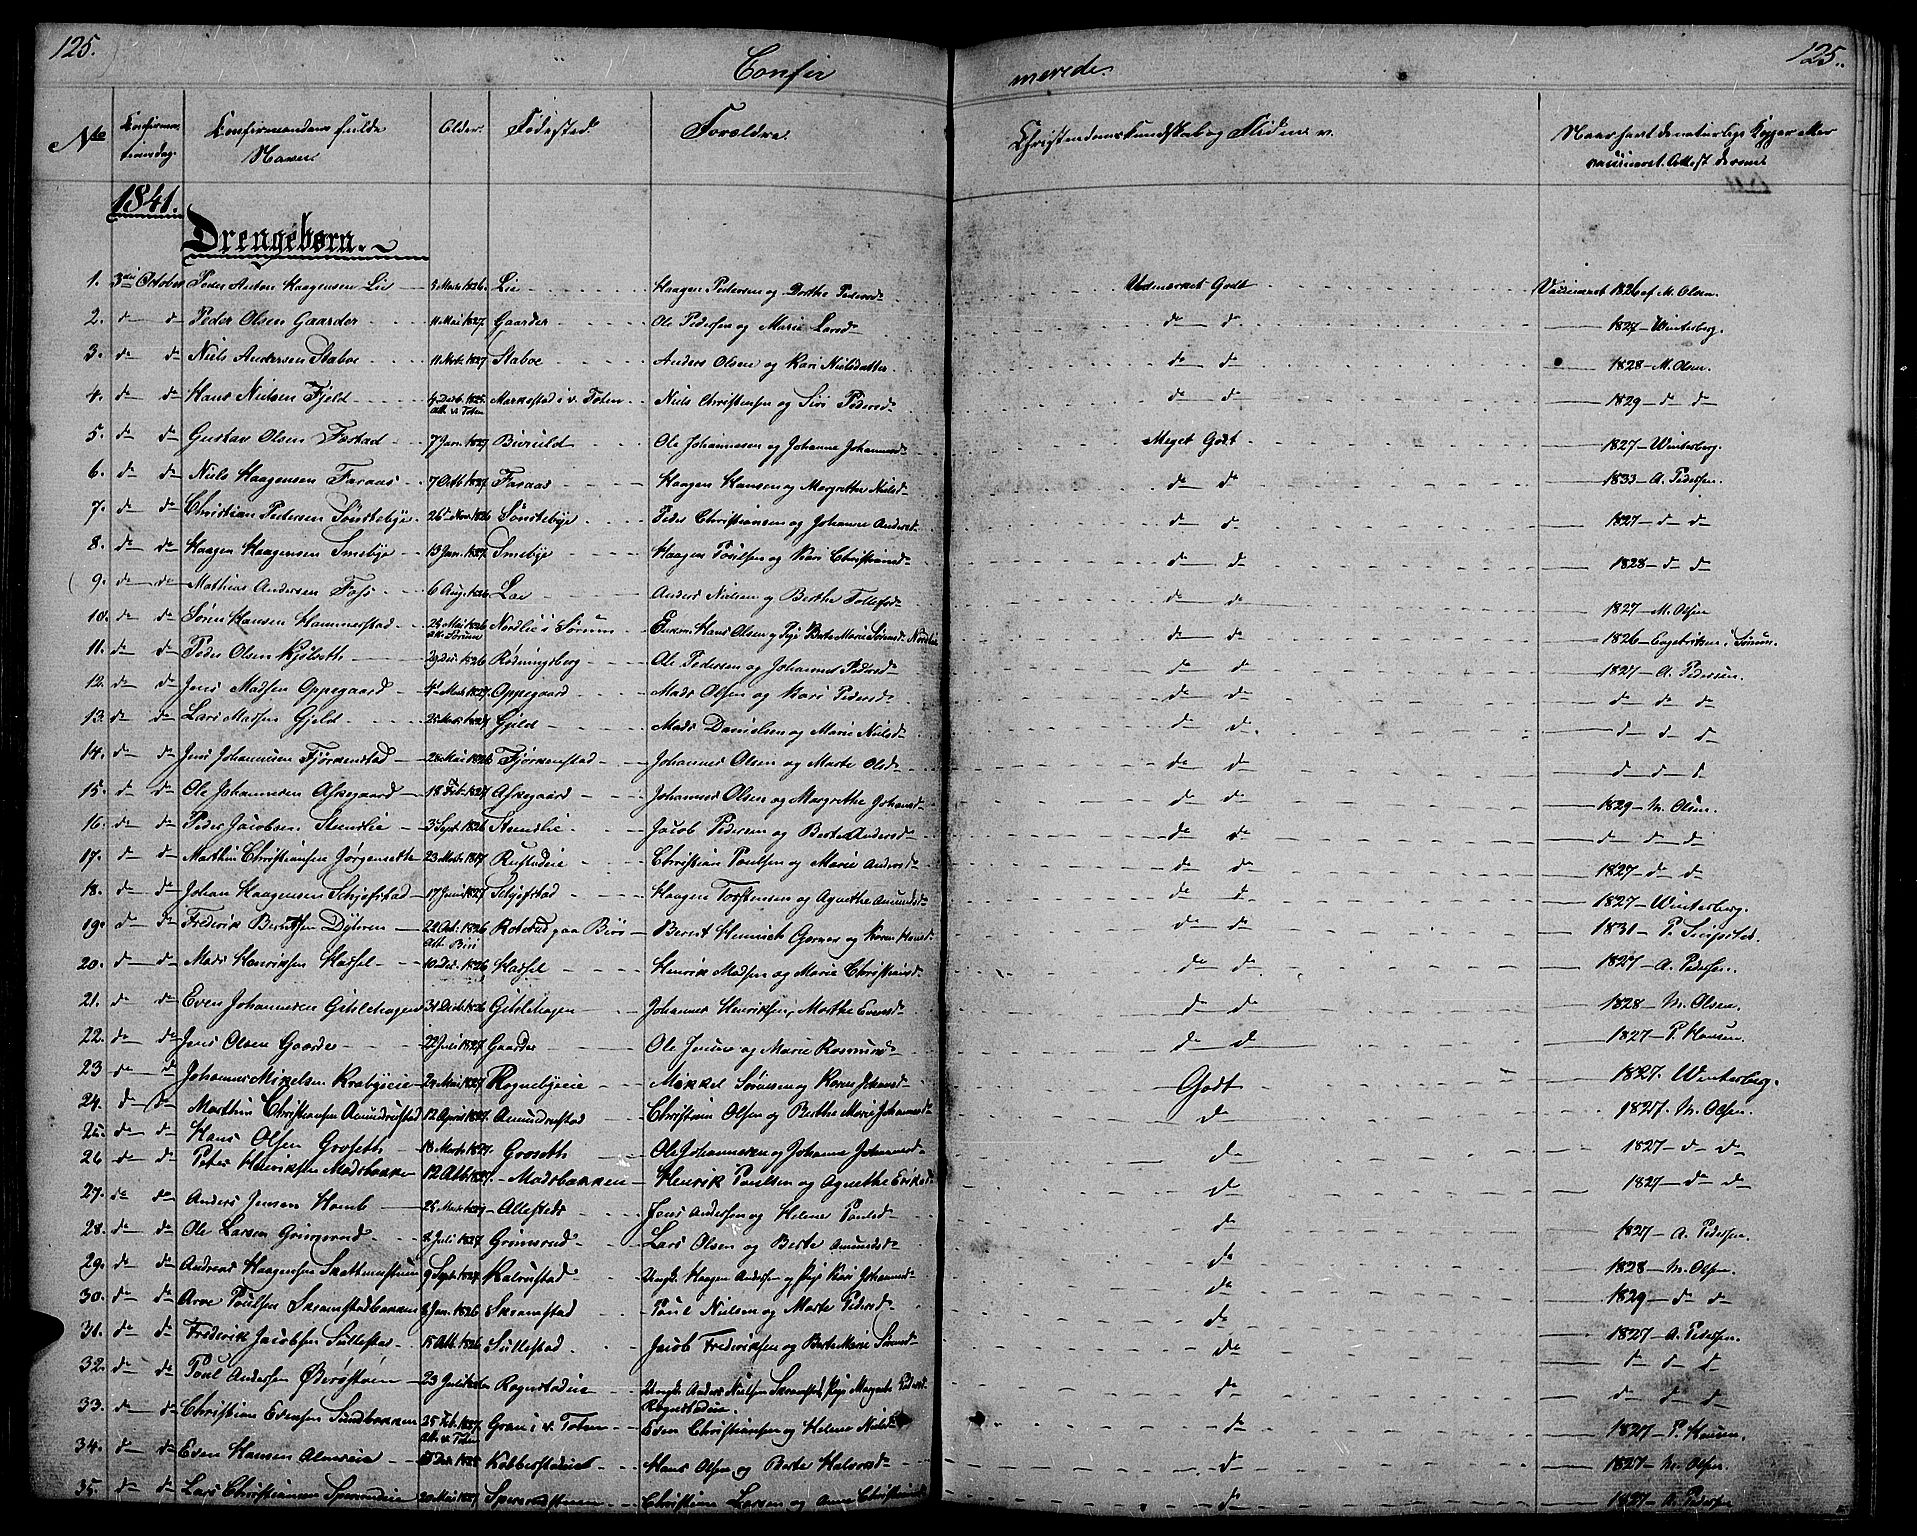 125. Confir merede. 125.
No Confirmationsdag. Konfirmandens fulde Navn. Alder. Fødested. Forældre. Christendomskundskab og Flid m. v. Naar havt de naturlige Kopper eller vaccineret. Attest derom
1841.
Drengebørn.
1. 3die October Peder Anton Haagensen Lie 1826. Lie Haagen Pedersen og Dorthe Pedersd Udmærket Godt Vaccineret 1826 af M. Olsen.
2. d d Peder Olsen Gaarder 11 Mai 1827. Gaarder Ole Pedersen og Marie Larsd d d 1827 Winterberg.
3. d d Niels Andersen Staboe 11 1827 Staboe Anders Olsen og Kari Nielsdatter d d 1828 M. Olsen.
4. d d Hans Nielsen Fjeld 4 Decb. 1825. att. v. Toten Markestad i v. Toten Niels Christensen og Siri Pedersd d d 1829 d d
5. d d Gustav Olsen Fostad 7 Jan. 1827 Bivruld Ole Johannessen og Johanne Johannesd Meget Godt 1827 Winterberg.
6. d d Niels Haagensen Faraas 7 Oktb 1827. Faraas Haagen Hansen og Margrethe Nielsd d d 1833 A. Pedersen.
7. d d Christian Pedersen Sønstebye 26 Nov. 1826 Sønstebye Peder Christiansen og Johanne Andersd d d 1827 d d
8. d d Haagen Haagensen Smebye 13 Jan. 1827. Smebye Haagen Poulsen og Kari Christiansd d d 1828 d d
9. d d Mathias Andersen Foss 6 Aug. 1826 Lae Anders Nielsen og Berthe Tollefsd d d 1827 M. Olsen
10. d d Søren Hansen Hammerstad 29 Mai 1826 att. Sørum Nordlie i Sørum Enkem. Hans Olsen og Pige Berte Marie Sørensd. Nordlie d d 1826 Engebretsen i Sørum.
11. d d Peder Olsen Kjølseth 29 Dec. 1826 Rødningsberg Ole Pedersen og Johanne Pedersd d d 1827 A. Pedersen.
12. d d Jens Madsen Oppegaard 4 1827. Oppegaard Mads Olsen og Kari Pedersd d d d d d
13. d d Lars Madsen Gjeld 25 1827 Gjeld Mads Danielsen og Marie Nielsd d d d d d
14. d d Jens Johannesen Fjørkenstad 28 Mai 1826 Fjørkenstad Johannes Olsen og Marte Olsd d d d d d
15. d d Ole Johannesen Alfsegaard 18 Feb. 1827 Alfsegaard Johannes Olsen og Margrethe Johannesd d d 1829 M. Olsen.
16. d d Peder Jacobsen Steenslie 3 Sept. 1826 Steenslie Jacob Pedersen og Berte Andersd d d d d d
17. d d Marthin Christiansen Jørgensette 23 1827 Rustadeie Christian Poulsen og Marie Andersd d d 1827 d d
18. d d Johan Haagensen Schjefstad 17 Juni 1827 Schjefstad Haagen Torstensen og Agnethe Amundsd d d 1827 Winterberg.
19. d d Frederik Berntsen Dyhren 22 1826 Att. Biri Rolstad paa Biri Bernt Henrich Gørnes og Karen Hansd d d 1831 P.
20. d d Mads Henriksen Hassel 10 Dec. 1826 Hassel Henrik Madsen og Marie Christiansd d d 1827 A. Pedersen.
21. d d Even Johannesen Gitslehagen 31 1826 Gitslehagen Johannes Henriksen, Marthe Evensd d d 1828 M. Olsen.
22. d d Jens Olsen Gaarder 22 Juli 1827. Gaarder Ole Jensen og Marie Rasmusd d d 1827 P. Hansen.
23 d d Johannes Mikkelsen Krabyeie 24 Mai 1827 Rognebyeie Mikkel Sørensen og Karen Johansd Godt 1827. Winterberg.
24. d d Marthin Christiansen Amundrustad 12 April 1827. Amundrustad Christian Olsen og Berthe Marie Johannesd d 1827. M. Olsen.
25. d d Hans Olsen Grøseth 18 1827. Grøseth Ole Johannesen og Johanne Johannesd d 1827 d d
26 d d Peter Henriksen Madsbakken 12 Oktb. 1827. Madsbakken Henrik Poulsen og Agnethe Eriksd d 1827 d d
27. d d Anders Jensen Homb 25 Allefeds Jens Andersen og Helene Poulsd d
28. d d Ole Larsen Grimsrud 8 Juli 1827. Grimsrud Lars Olsen og Berte Amundsd d 1827 A. Pedersen.
29. d d Andreas Haagensen 9 Sept. 1827 Kalrustad Ungk. Haagen Andersen og Pige Kari Johannesd d 1828 M. Olsen.
30. d d Arve Poulsen Skramstadbakken 8 Jan. 1826 Skramstad Poul Nielsen og Marte Pedersd d 1829 d d
31. d d Frederik Jacobsen Sullestad 15 Oktb. 1826 Sullestad Jacob Frederiksen og Berte Marie Sørensd d 1827 A. Pedersen.
32. d d Poul Andersen Øverøstøien 23 Juli Rognstadeie Ungk. Anders Nielsen Skramstad, Pige Margrete Pedersd. Rognstadeie. d d d d
33. d d Christian Evensen Sundbakken 25 Feb. 1827. att. v. Toten Gran i v. Toten Even Christiansen og Helene Nielsd d 1827 P. Hansen.
34. d d Even Hansen Almeseie Dec. 1825 Kobberstadeie Hans Olsen og Berte Halvorsd d 1827 M. Olsen.
35. d d Lars Christiansen 20 Mai 1827 Christian Larsen og Anne Christiansd d 1827 A. Pedersen